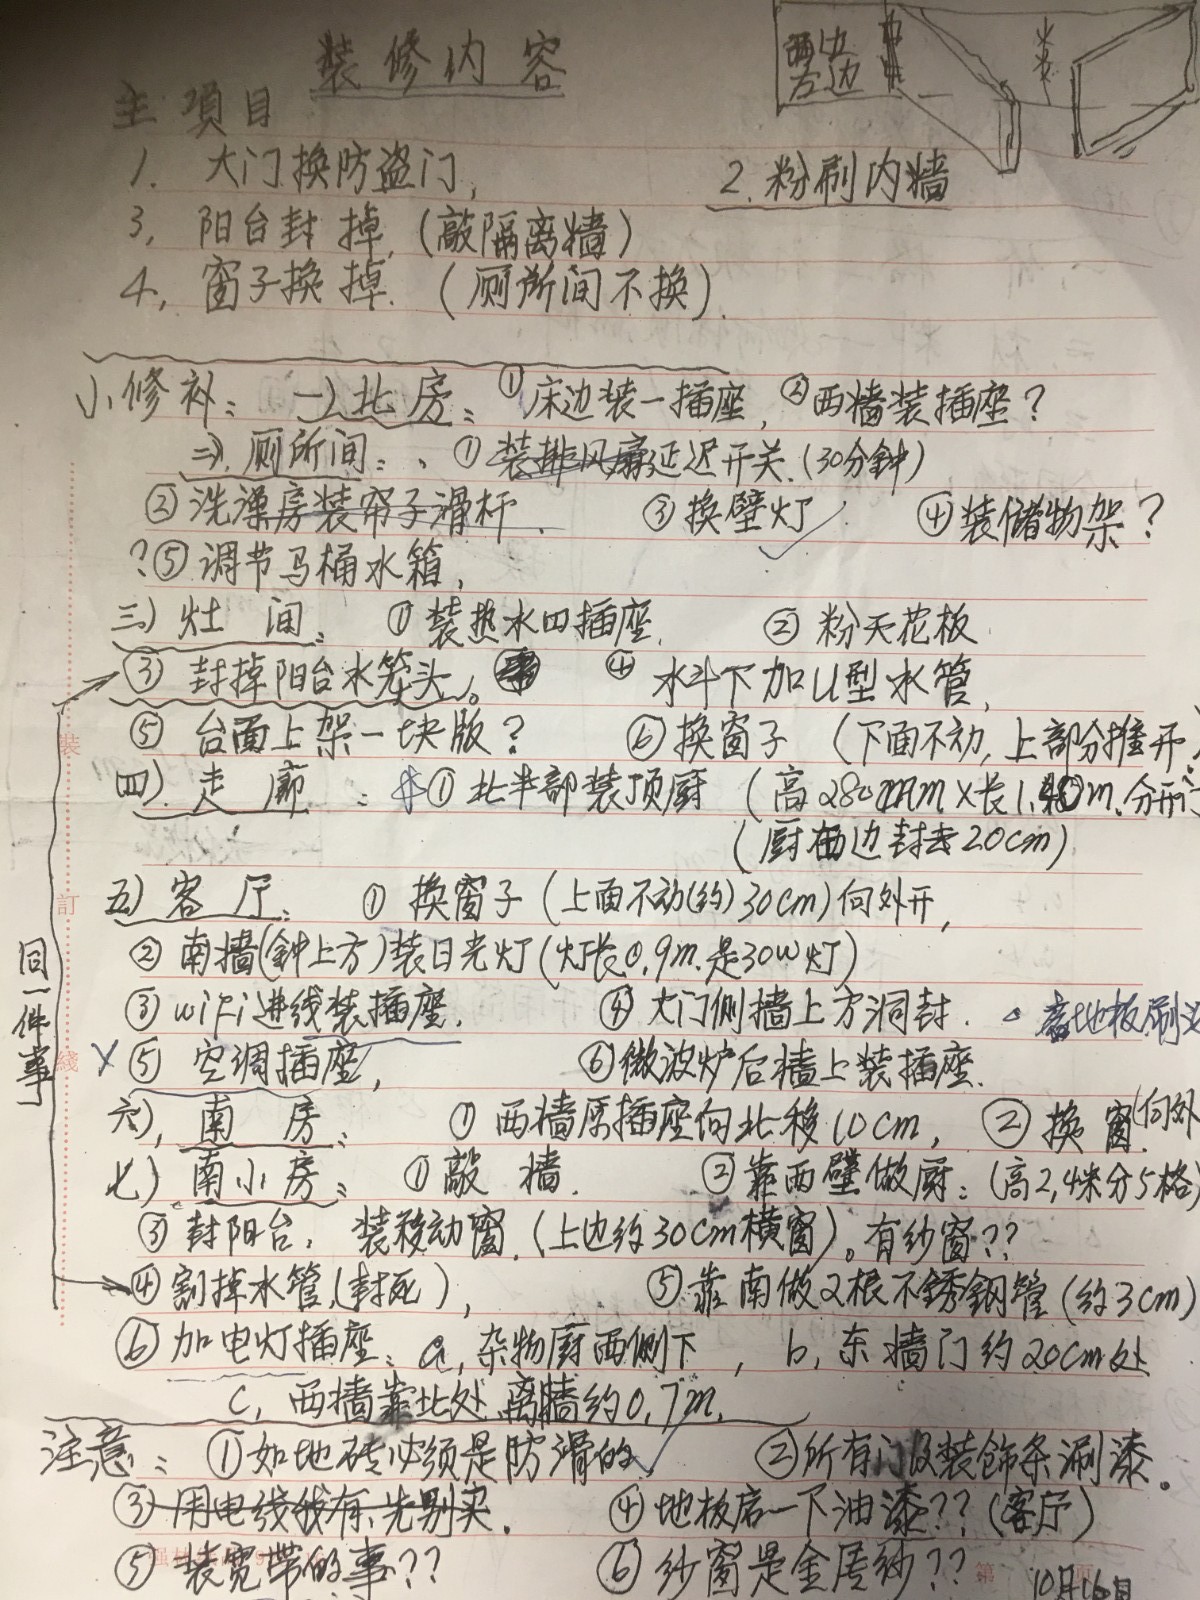 装修内容
西边
方边
主項目
1. 大门换防盗门,
2. 粉刷内墙
3, 阳台封掉, (敲隔离墙)
4, 窗子换掉. (厕所间不换).
小修补: 一) 北房: ①床边装一插座, ②西墙装插座?
二). 厕所间: 、①装排风扇延迟开关.(30分鈡)
②洗澡房装帘子滑杆. ③换壁灯 ④装储物架?
?⑤调节马桶水箱,
三) 灶间: ①装热水四插座. ②粉天花板
③封掉阳台水笼头。 ④水斗下加U型水管,
⑤台面上架一块版? ⑥换窗子 (下面不动,上部分推开)
四). 走廊: ①北半部装顶厨 (高280mm×长1.   m.分开门
(厨西边封去20cm)
五) 客厅: ①换窗子(上面不动(约)30cm)向外开,
②南墙(鈡上方)装日光灯(灯长0.9m.是30W灯)
③wiFi进线装插座. ④大门侧墙上方洞封. 地板刷
X ⑤空调插座, ⑥微波炉后墙上装插座.
六), 南房: ①西墙原插座向北移10cm, ②换窗(向外
七) 南小房: ①敲墙. ②靠西壁做厨: (高2,4米分5格)
③封阳台, 装移动窗.(上边约30cm横窗)。有纱窗??
④割掉水管,(封死), ⑤靠南做2根不銹鋼管(约3cm)
⑥加电灯插座: a, 杂物厨西侧下, b, 东墙门约20cm处
c, 西墙靠北处 离墙约0.7m.
同一件事
注意: ①如地砖必须是防滑的 ②所有门及装饰条涮漆。
③用电线我有,先别买. ④地板启一下油漆??(客厅)
⑤装宽带的事?? ⑥纱窗是金属纱??
第 页
10月16日
裝
訂
綫